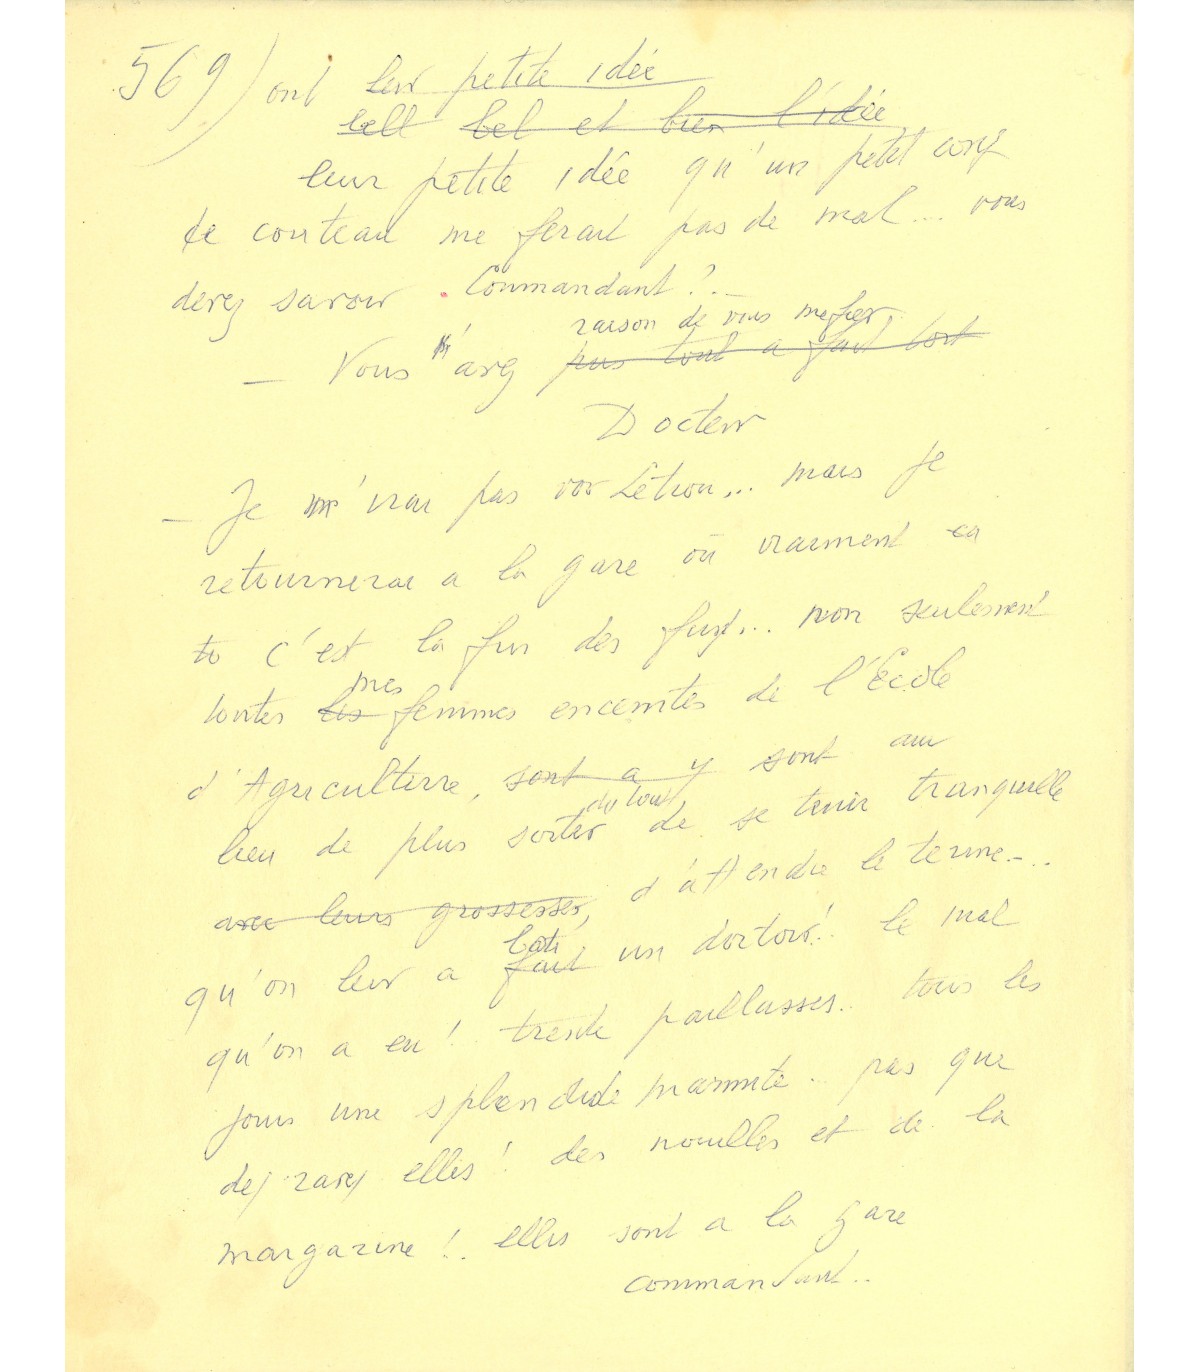 569) ont leur petite idée
bel et bien l'idée
leur petite idée qu'un petit coup
de couteau me ferait pas de mal... vous
devez savoir Commandant ?..
raison de vous mefier
— Vous avez pas tout a fait tort
Docteur
— Je m'irai pas voir Létron... mais je
retournerai a la gare où vraiment ca
c'est la fin des fins... non seulement
mes
toutes les femmes enceintes de l'Ecole
d'Agriculterre, sont a y sont au
lieu de plus sortir du tout de se tenir tranquille
avec leurs grossesses, d'attendre le terme...
bati
qu'on leur a fait un dortoir! le mal
qu'on a eu! trente paillasses.. tous les
jours une splendide marmite.. pas que
des raves elles! des nouilles et de la
margarine!. elles sont a la gare
commandant..